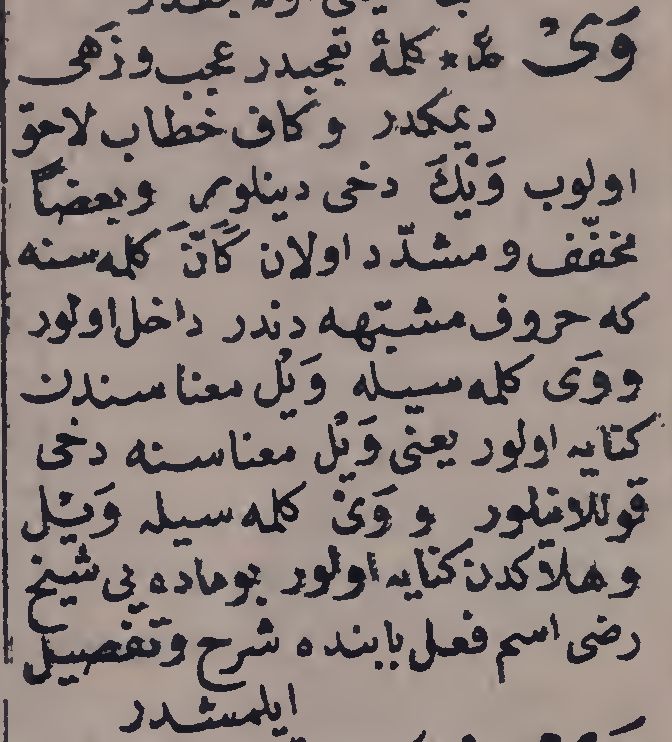 وَىْ * كلمۀ تعجبدر عجب و زهى
ديمكدر و كاف خطاب لاحق
اولوب وَيْكَ دخى دينلور و بعضاً
مخفّف و مشدّد اولان كَأَنَّ كلمه سنه
كه حروف مشبّهه دندر داخل اولور
و وَى كلمه سيله وَيْل معناسندن
كنايه اولور يعنى وَيْل معناسنه دخى
قوللانلور و وَىْ كلمه سيله وَيْل
و هلاكدن كنايه اولور بو ماده يى شيخ
رضى اسم فعل بابنده شرح و تفصيل
ايلمشدر